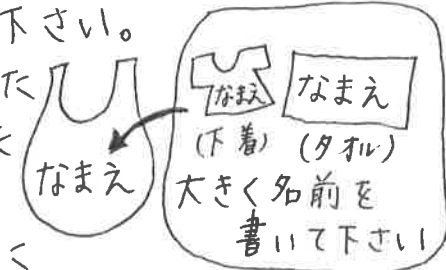 下さい。
た
く
なまえ
く
なまえ
(下着)
なまえ
(タオル)
大きく名前を
書いて下さい